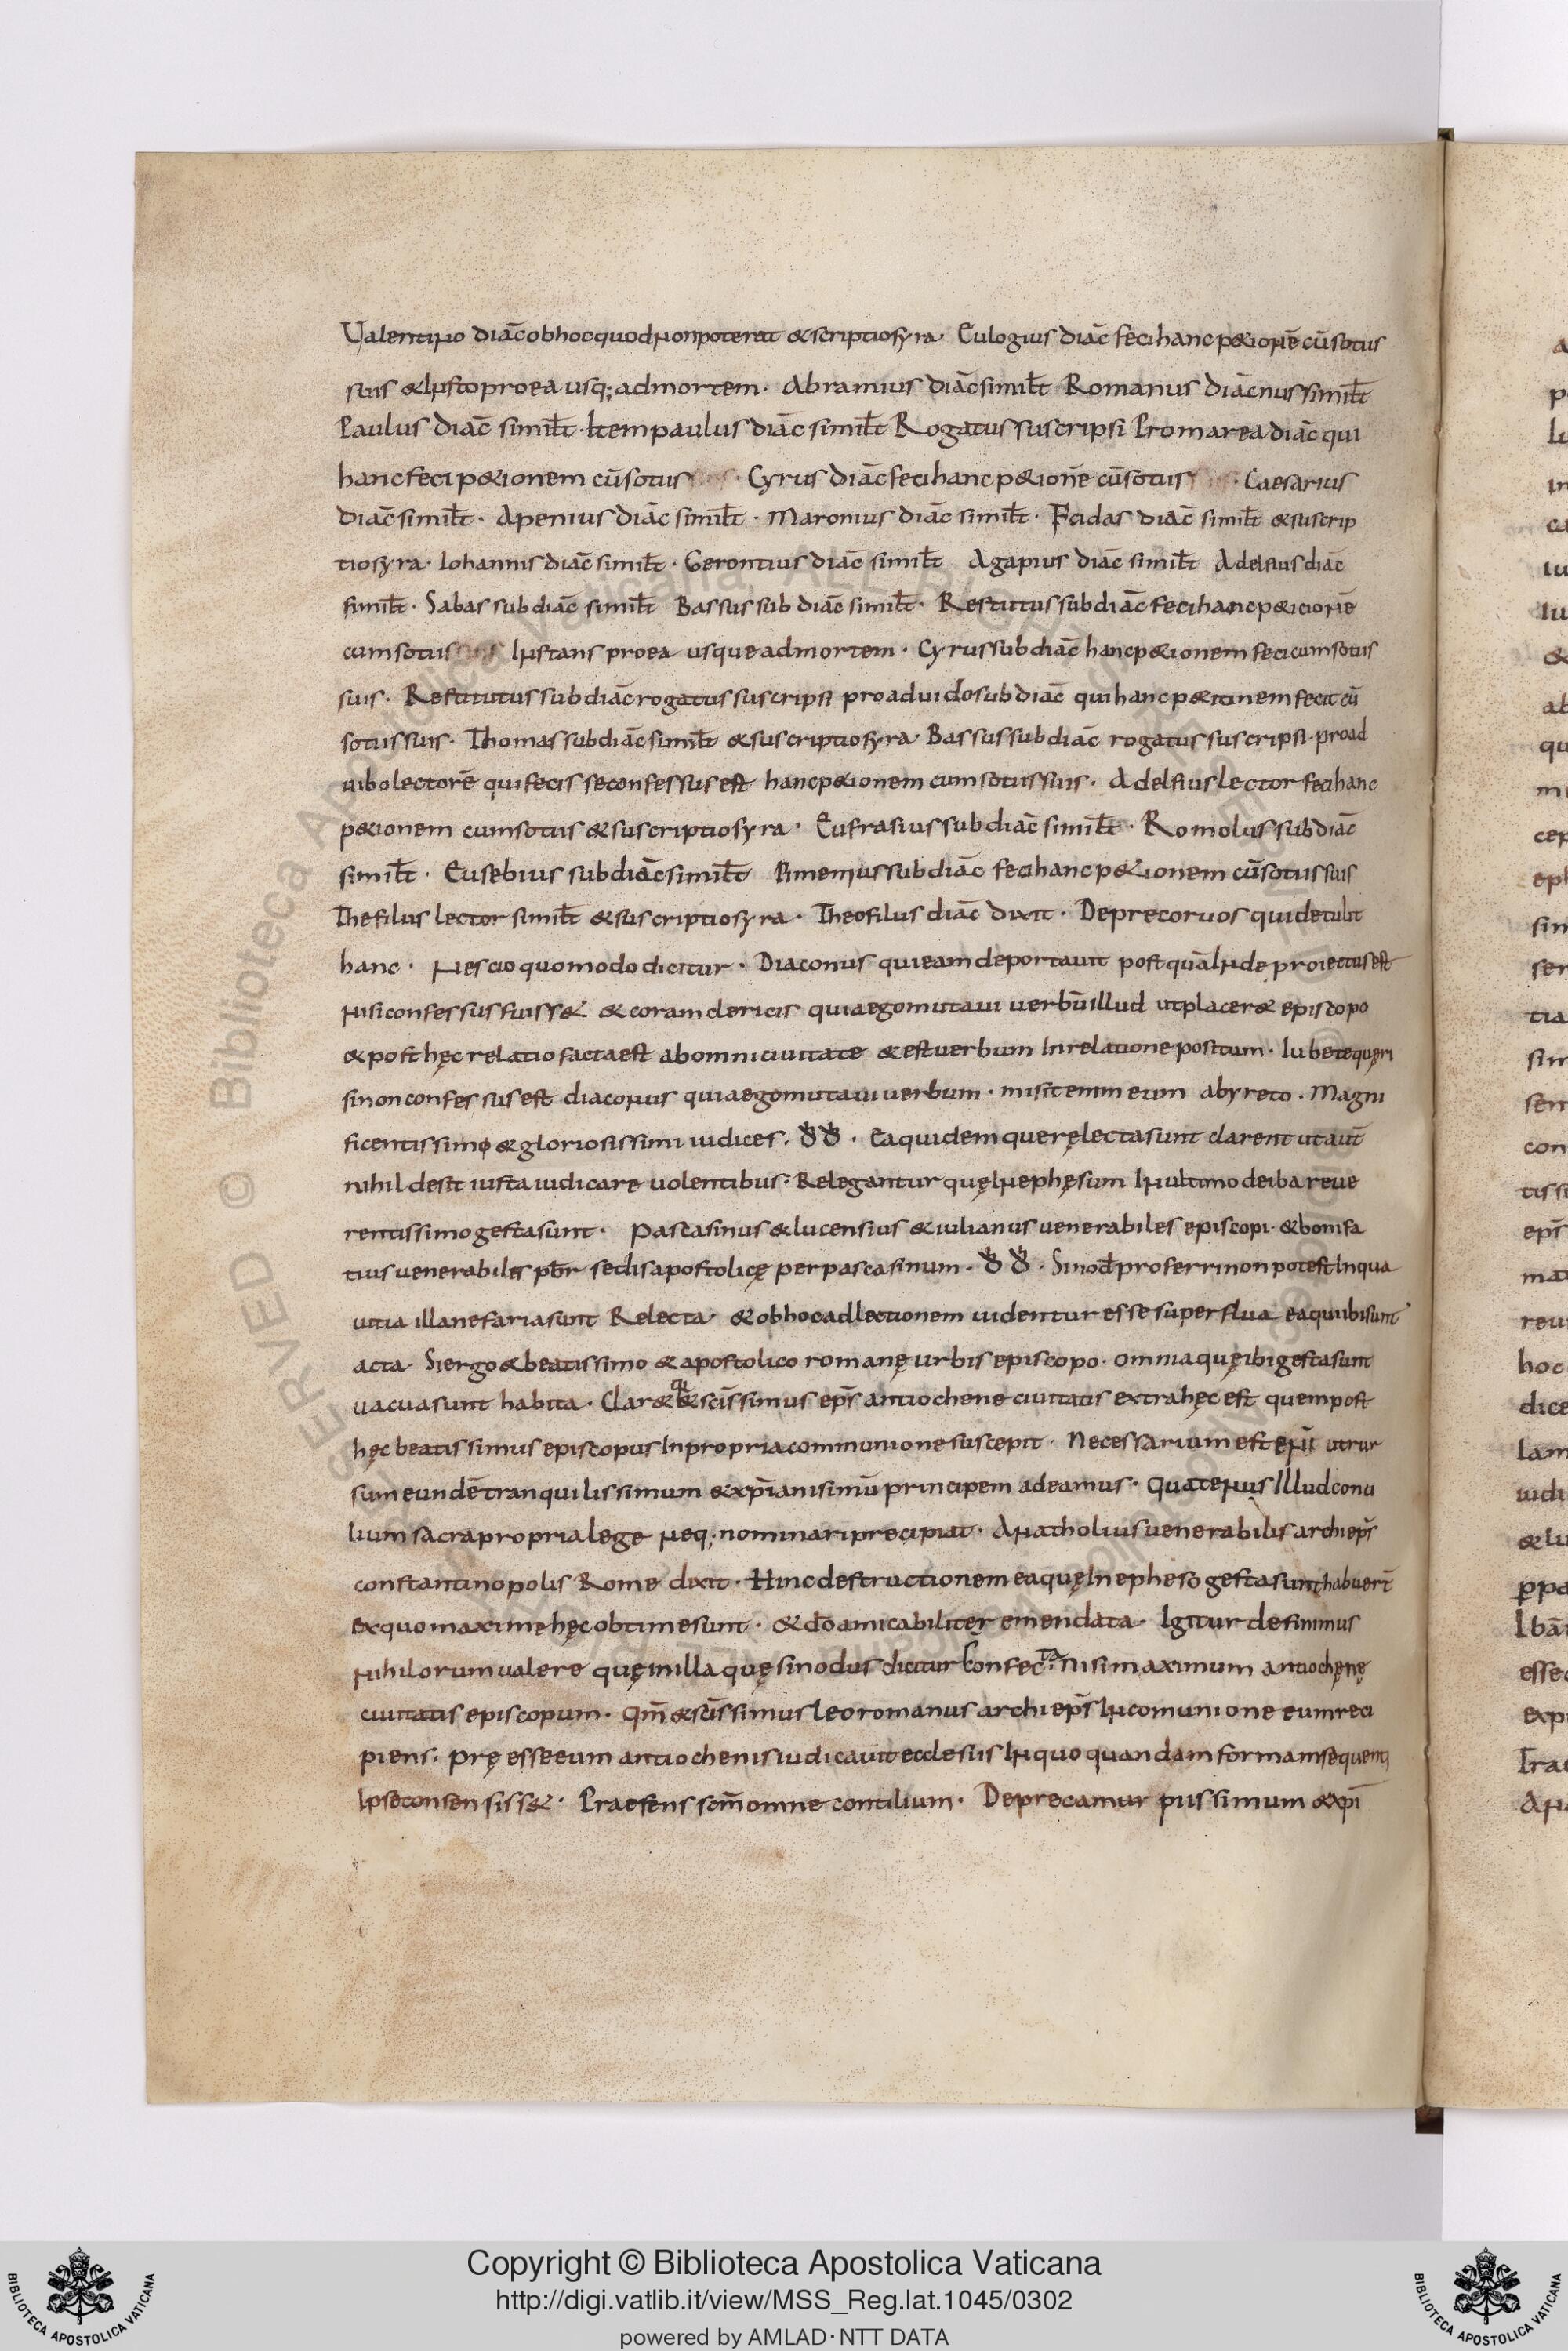 Ualentino diac̄ obhocquodnonpoterat &scriptiosyra Eulogius diac̄ fecihancp&ionē cūsotus
suis &Instoproea usq; admortem · Abramius diac̄simil̄t Romanus diac̄nussimil̄t
Paulus diac̄ simil̄t · Item paulus diac̄ simil̄t Rogatus suscripsi Promarea diac̄ qui
hanc feci p&ionem cūsotus · Cyrus diac̄ feci hanc p&ionē cūsotus · Caesarius
diac̄ simil̄t · Apenius diac̄ simil̄t · Maronius diac̄ simil̄t · Fcidas diac̄ simil̄t &suscrip
tiosyra · Iohannis diac̄ simil̄t · Gerontius diac̄ simil̄t Agapius diac̄ simil̄t Adelfius diac̄
simil̄t · Sabas subdiac̄ simil̄t Bassus subdiac̄ simil̄t · Restitutus subdiac̄ feci hanc p&icionē
cumsotus Instans proea usqueadmortem · Cyrus subdiac̄ hanc p&ionem feci cumsotus
suis · Restitutus subdiac̄ rogatus suscripsi proaduido subdiac̄ qui hanc p&itionem fecit cū
sotussuis · Thomas subdiac̄ simil̄t &suscriptiosyra · Bassus subdiac̄ rogatus suscripsi · proad
uibo lectorē qui fecis seconfessus est hanc p&ionem cum sotussuis · Adelfius lector feci hanc
p&ionem cumsotus &suscriptiosyra · Eufrasius subdiac̄ simil̄t · Romolus subdiac̄
simil̄t · Eusebius subdiac̄ simil̄t subdiac̄ feci hanc p&ionem cūsotussuis
Thefilus lector simil̄t &suscriptiosyra · Theofilus diac̄ dixit · Deprecor uos quidetulit
hanc · Nescio quomodo dicitur · Diaconus quieam deportauit postquā Inde proiectus est
nisi confessus fuiss& &coram clericis quiaego mutaui uerbū illud utplacer& episcopo
&post hęc relatio facta est abomniciuitate &est uerbum Inrelatione positum · Iubete quęri
sinon confessus est diaconus quiaego mutaui uerbum · misit enim eum abyreto · Magni
ficentissimo &gloriosissimi iudices · · Eaquidem querę lectasunt clarent utaut̄
nihil desit iusta iudicare uolentibus · Relegantur quę Inephęsum Inultimo deiba reue
rentissimo gestasunt · Pascasinus &lucensius &iulianus uenerabiles episcopi · &bonifa
tius uenerabiles pb̄r sedisapostolicę per pascasinum · · Sinod̄ proferri non potest Inqua
uitia illa nefaria sunt Relecta · &obhocadlectionem uidentur esse superflua eaquibi sunt
acta Siergo &beatissimo &apostolico romanę urbis episcopo · omnia quę ibi gesta sunt
uacuasunt habita · Clar& qa &scīssimus ep̄s antiochene ciuitatis extrahęc est quem post
hęc beatissimus episcopus Inpropria communione suscepit · Necessarium est enī utrur
sum eundē tranquilissimum &xp̄ianisimū principem adeamus · Quatenus Illud conci
lium sacra propria lege neq; nominari precipiat · Anatholius uenerabilis archiep̄s
constantinopolis Rome dixit · Hinc destructionem eaquę Inepheso gestasunt habuer̄t
exquo maxime hęc obtimesunt · &d̄o amicabiliter emendata · Igitur definimus
nihilorum ualere quę inilla quę sinodus dicitur confec̄ta · nisi maximum antiochęnę
ciuitatis episcopum · Qm̄ &scīssimus Leo romanus archiep̄s Incomunione eumreci
piens · pręesse eum antiochenis iudicauit ecclesiis Inquo quandam formam sequens
Ipse consensiss& · Praesens scm̄ omne contilium · Deprecamur piissimum &xp̄i
Copyright © Biblioteca Apostolica Vaticana
http://digi.vatlib.it/view/MSS_Reg.lat.1045/0302
powered by AMLAD·NTT DATA